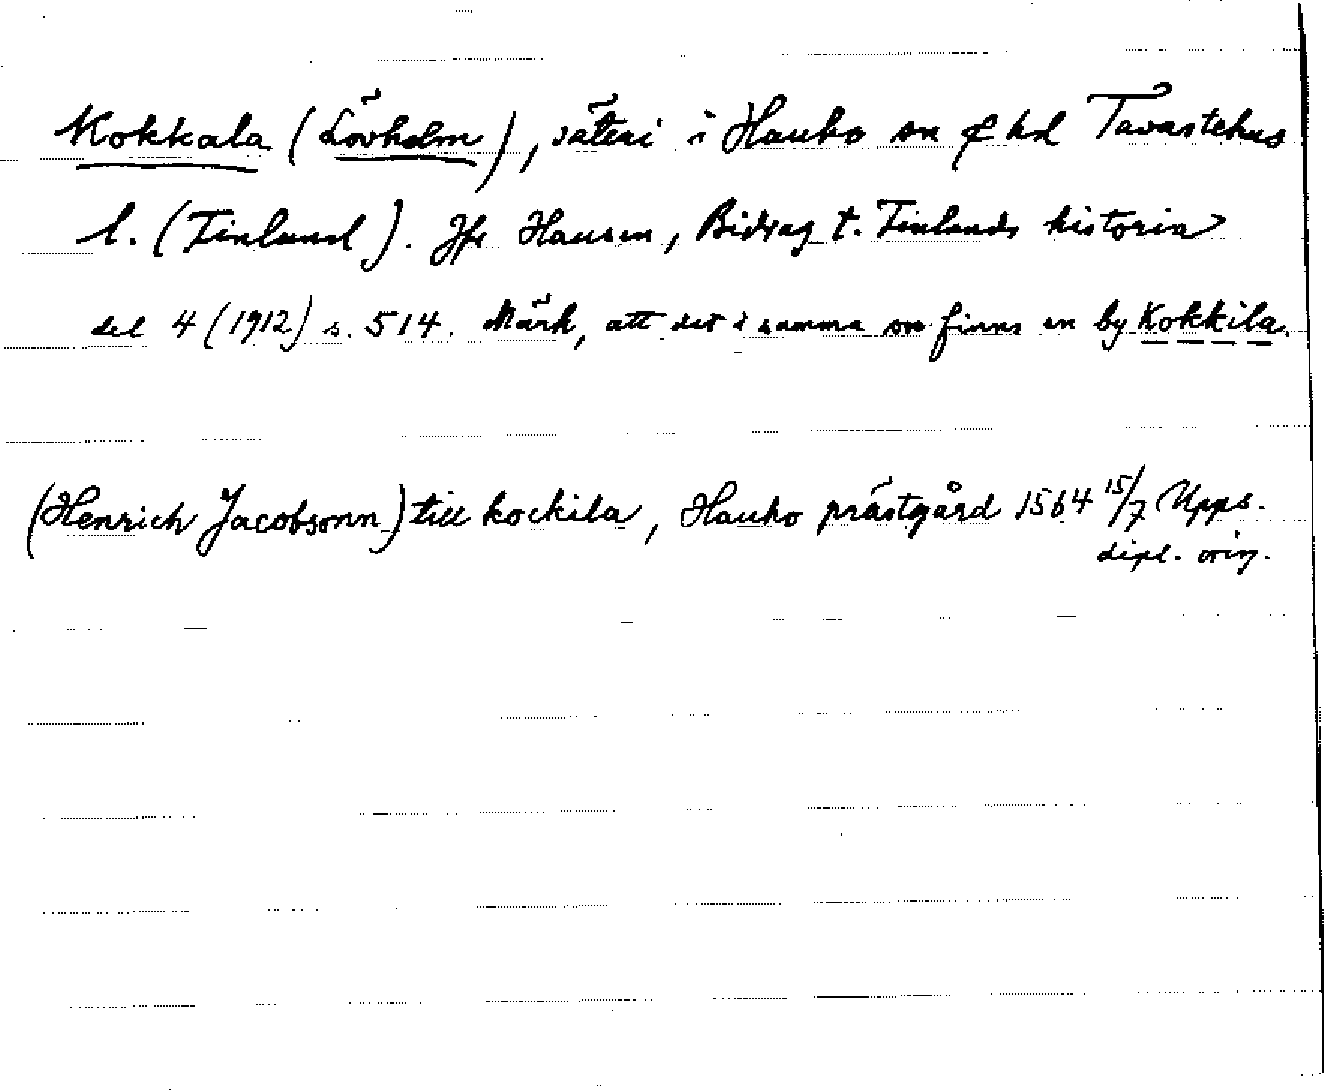 Kokkala (Lövholm), säteri i Hauho sn & hd Tavastehus
l. (Finland). Jfr Hausen, Bidrag t. Finlands historia
del 4 (1912) s. 514. Märk, att det i samma sn finns en by Kokkila.
(Henrich Jacobsonn) till kockila, Hauho prästgård 1564 15/7 Upps.
dipl. orig.